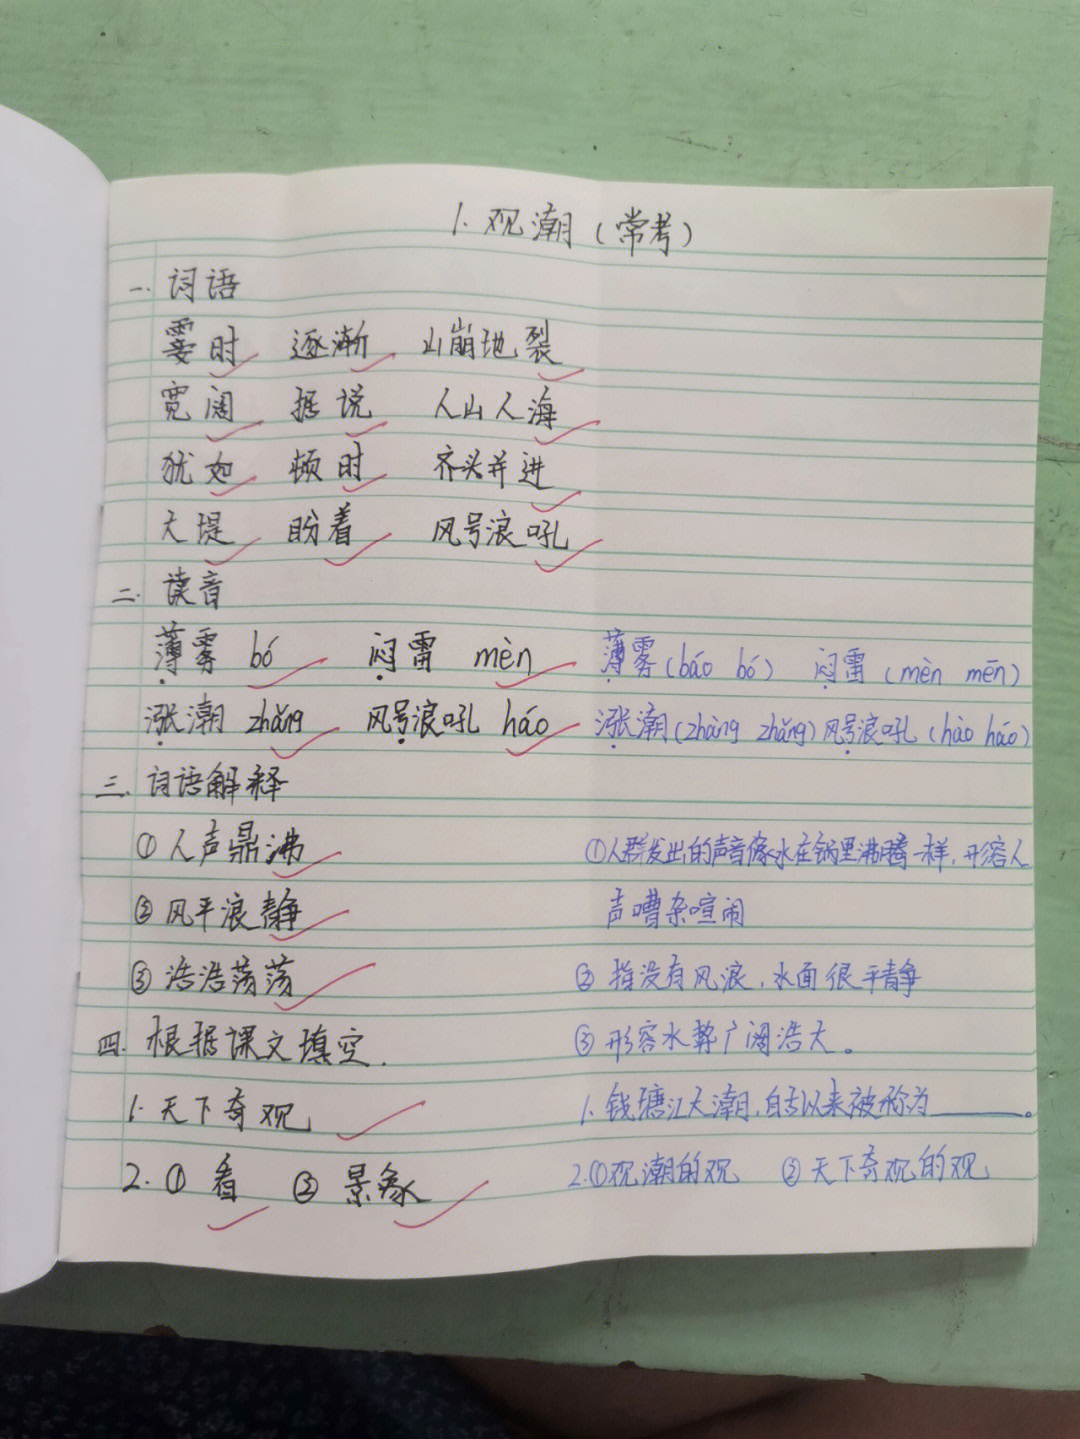 1. 观潮（常考）
一. 词语
霎时 逐渐 山崩地裂
宽阔 据说 人山人海
犹如 顿时 齐头并进
大堤 盼着 风号浪吼
二. 读音
薄雾 bó 闷雷 mèn 薄雾(báo bó) 闷雷(mèn mēn)
涨潮 zhǎng 风号浪吼 háo 涨潮(zhàng zhǎng) 风号浪吼(hào háo)
三. 词语解释
①人声鼎沸 ①人群发出的声音像水在锅里沸腾一样,形容人
②风平浪静 声嘈杂喧闹
③浩浩荡荡 ②指没有风浪,水面很平静
四. 根据课文填空. ③形容水势广阔浩大。
1. 天下奇观 1. 钱塘江大潮,自古以来被称为______。
2. ①看 ②景象 2.①观潮的观 ②天下奇观的观